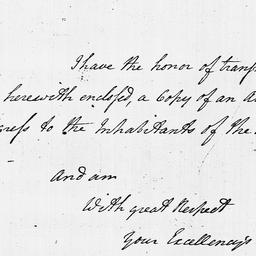 I have the honor of transm
herewith enclosed, a Copy of an A
gress to the Inhabitants of the
And am
With great Respect
Your Excellency's